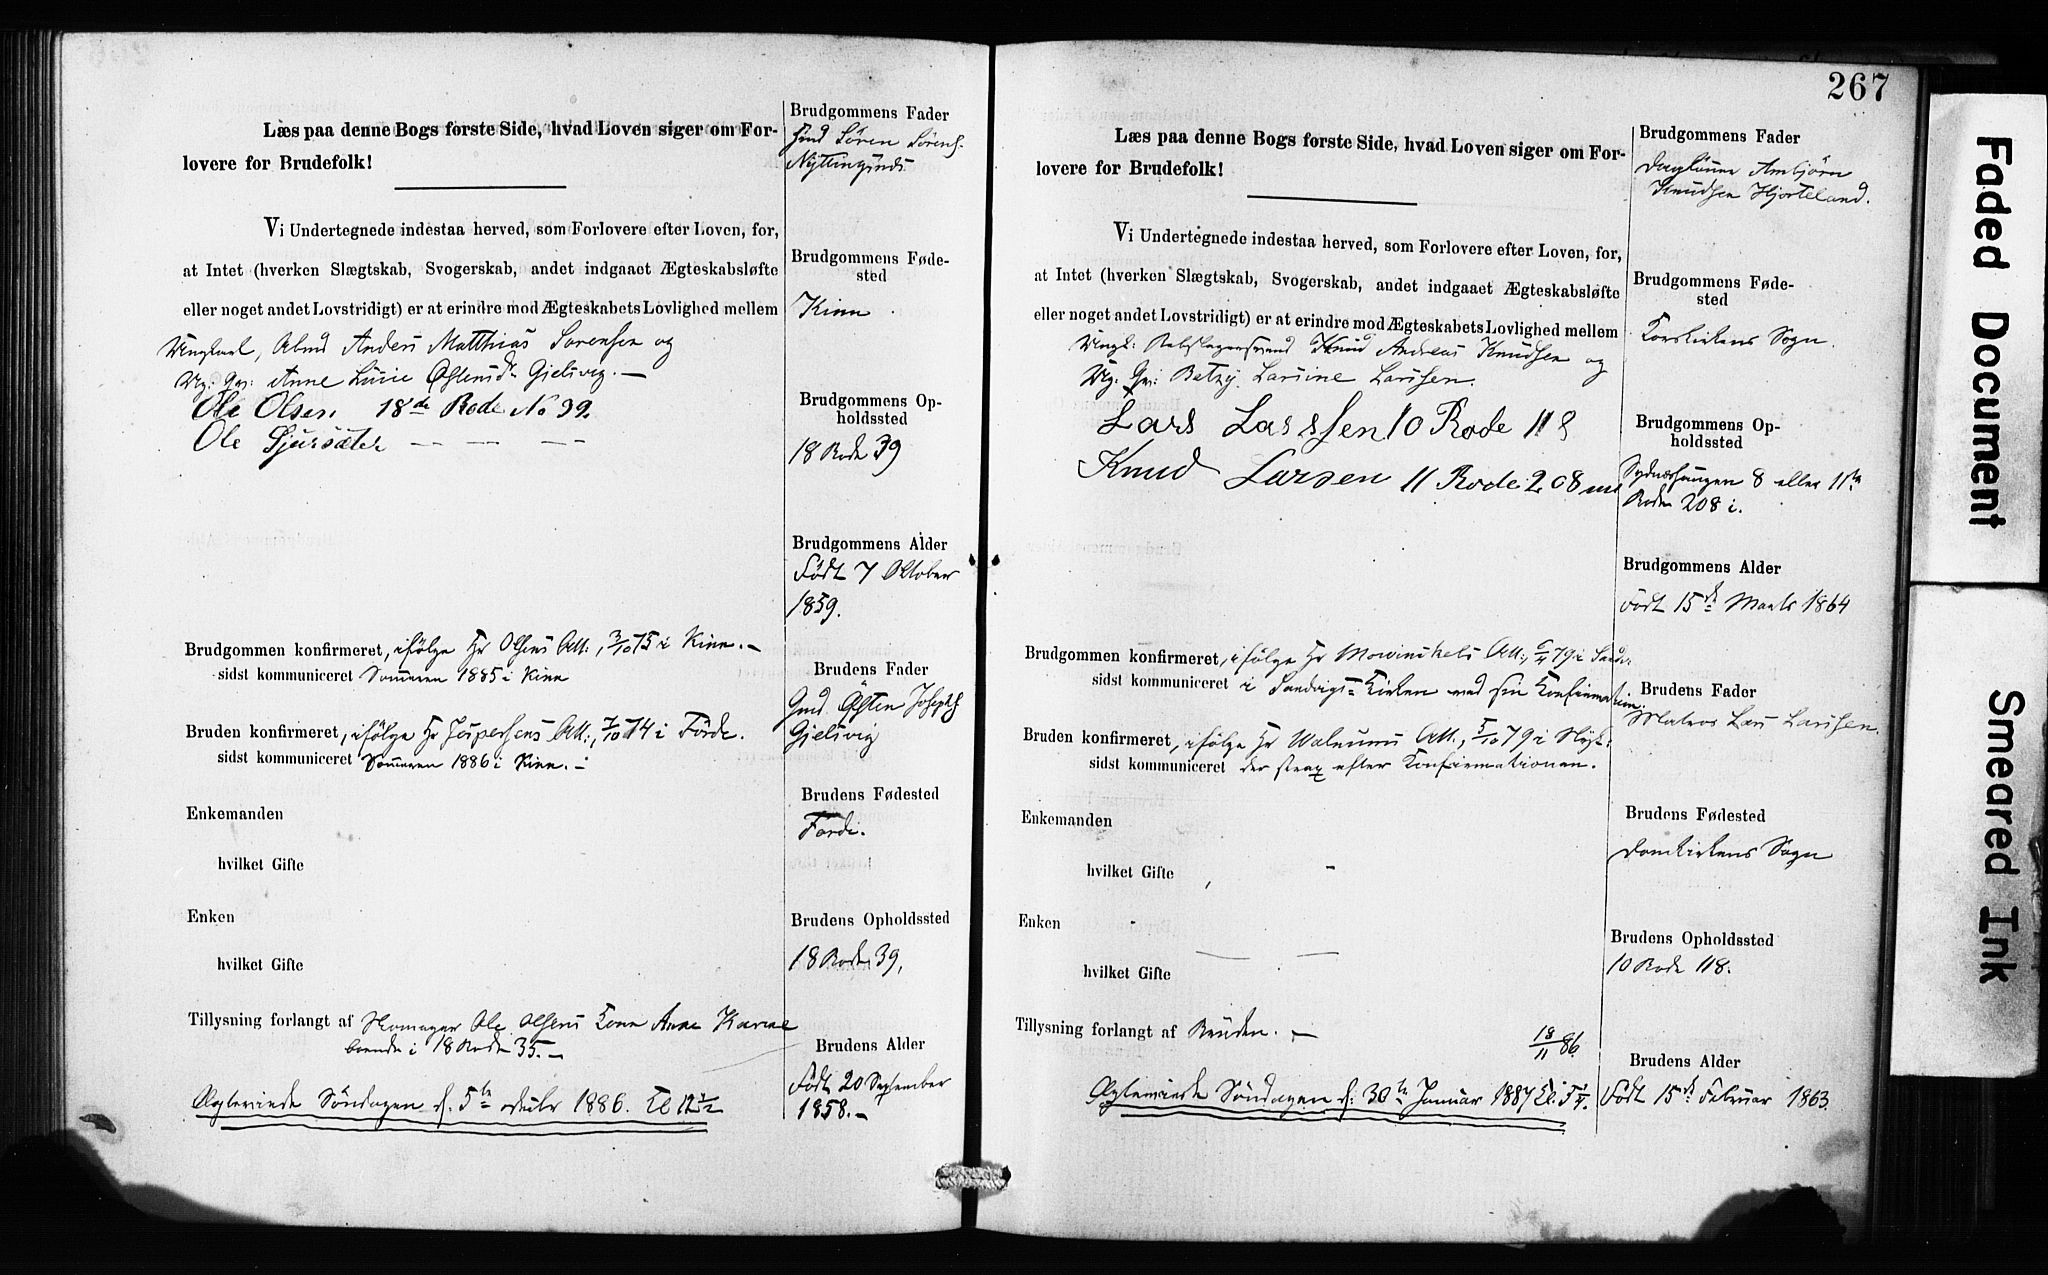 Læs paa denne Bogs første Side, hvad Loven siger om For-
lovere for Brudefolk!
Vi Undertegnede indestaa herved, som Forlovere efter Loven, for,
at Intet (hverken Slægtskab, Svogerskab, andet indgaaet Ægteskabsløfte
eller noget andet Lovstridigt) er at erindre mod Ægteskabets Lovlighed mellem
Ungkarl, Anders Matthias Sørensen og
Anne Østensdr Gjelsvig. —
Ole Olsen 18de Rode No 39.
Ole Sjursæter — — —
Brudgommen konfirmeret, ifölge Hr Olsens Att:, 3/10 75 i Kinn. —
sidst kommuniceret Sommeren 1885 i Kinn
Bruden konfirmeret, ifölge Hr Jespersens Att:, 4/10 74 i Förde.
sidst kommuniceret Sommeren 1886 i Kinn. —
Enkemanden
hvilket Gifte
Enken
hvilket Gifte
Tillysning forlangt af Skomager Ole Olsens Kone Anne Karine
boende i 18 Rode 35. —
Ægteviede Söndagen d. 5te 1886. Kl 12 1/2
Brudgommens Fader
Gmd Sören Sörens.
Brudgommens Føde-
sted
Kinn
Brudgommens Op-
holdssted
18 Rode 39
Brudgommens Alder
Födt 7 Oktober
1859.
Brudens Fader
Gmd. Östen Josephs.
Gjelsvig
Brudens Fødested
Förde.
Brudens Opholdssted
18 Rode 39,
Brudens Alder
Födt 20 September
1858. —
267
Læs paa denne Bogs første Side, hvad Loven siger om For-
lovere for Brudefolk!
Vi Undertegnede indestaa herved, som Forlovere efter Loven, for,
at Intet (hverken Slægtskab, Svogerskab, andet indgaaet Ægteskabsløfte
eller noget andet Lovstridigt) er at erindre mod Ægteskabets Lovlighed mellem
Ungk: Rebslagersvend Knud Andreas Knudsen og
Betzy Larsine Larssen.
Lars Larssen 10 Rode 118
Knud Larsen 11 Rode 208
Brudgommen konfirmeret, ifölge Hr Mowinckels Att:, 79 i
sidst kommuniceret i Sandvigs-Kirken med sin Konfirmation.
Bruden konfirmeret, ifölge Hr Walnums Att:, 5/10 79 i
sidst kommuniceret der strax efter Konfirmationen.
Enkemanden
hvilket Gifte
Enken
hvilket Gifte
Tillysning forlangt af Bruden. — 18/11 86
Ægteviede Söndagen d: 30te Januar 1887 Kl.
Brudgommens Fader
Daglönner Ambjörn
Knudsen Hjorteland.
Brudgommens Føde-
sted
Korskirkens Sogn.
Brudgommens Op-
holdssted
8 eller 11te
Rode 208 i.
Brudgommens Alder
Födt 15de Marts 1864
Brudens Fader
Matros Lars Larssen.
Brudens Fødested
Domkirkens Sogn
Brudens Opholdssted
10 Rode 118.
Brudens Alder
Födt 15de Februar 1863.
Faded Document
Smeared Ink